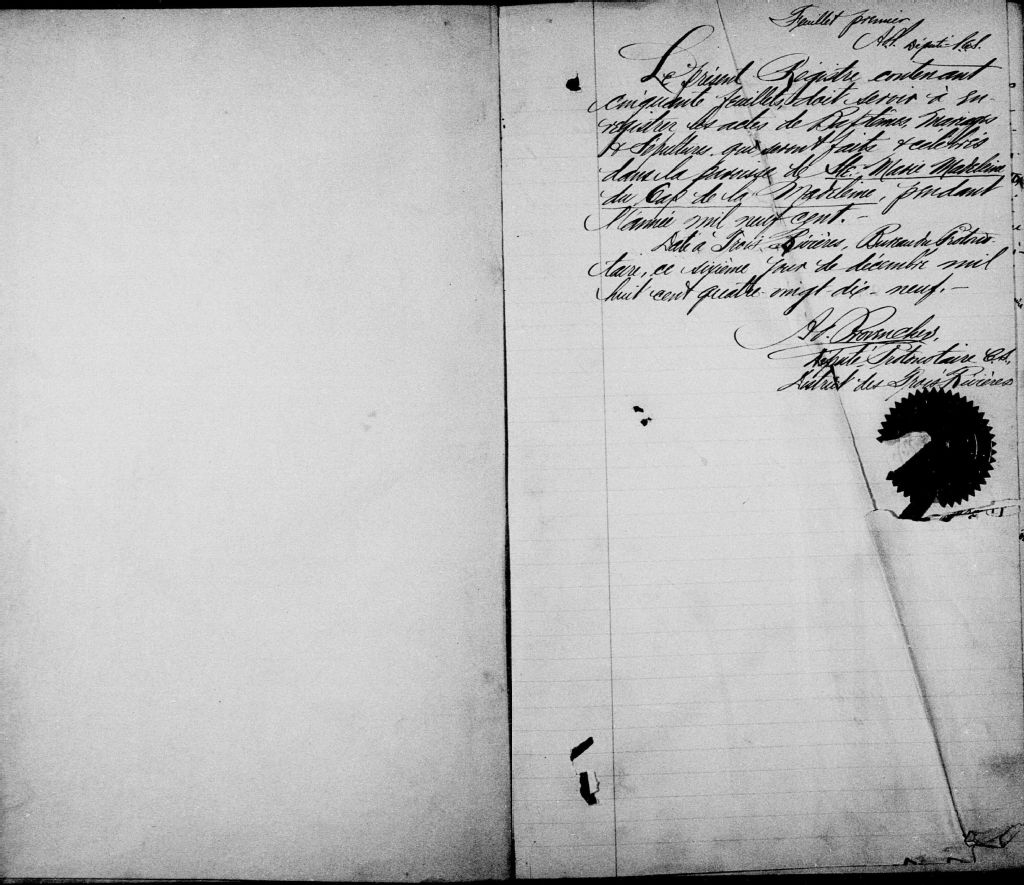 Feuillet premier
Ad. Député
Le présent Régistre contenant
cinquante feuillets doit servir à en-
registrer les actes de Baptêmes, Mariages
& Sépultures qui seront faits & celebrés
dans la paroisse de Ste. Marie Madeleine
du Cap de la Madeleine, pendant
l'année mil neuf cent. -
Daté à Trois Rivières, Bureau du Protono-
taire, ce sixième jour de décembre mil
huit cent quatre-vingt dix-neuf. -
Ad. Provencher,
Député Protonotaire C.S.
District des Trois Rivières